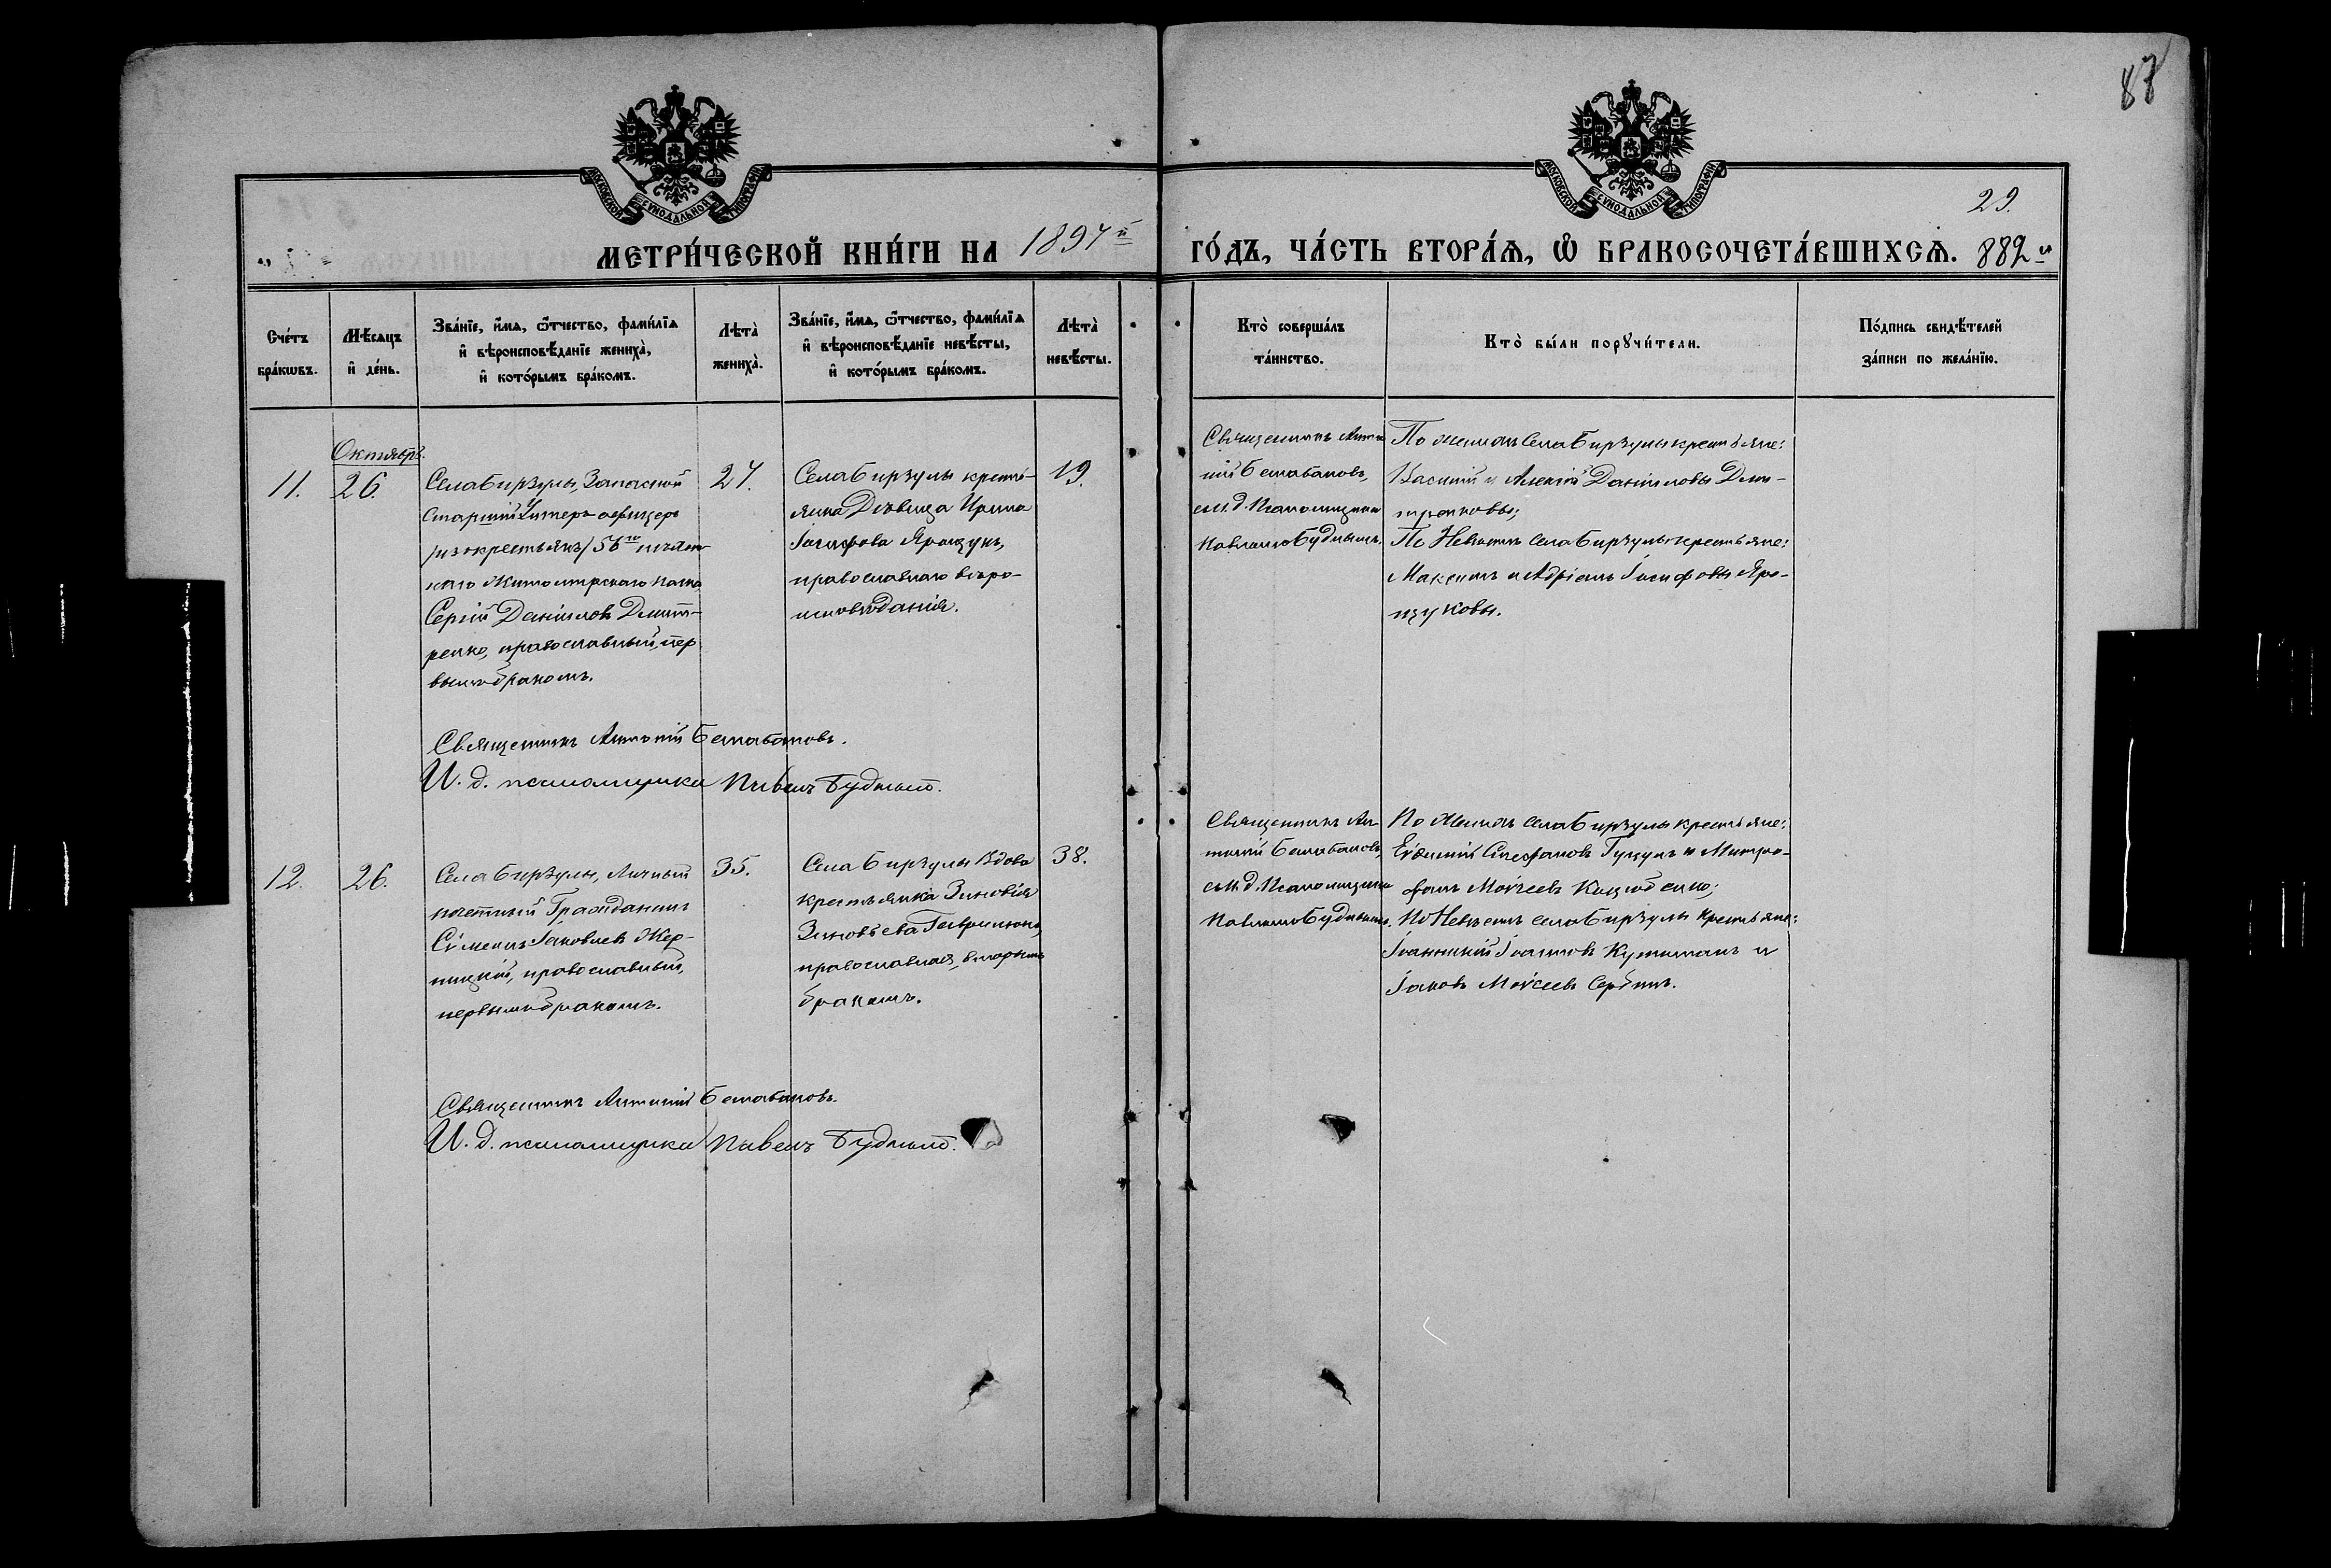 87
МОСКОВСКОЙ СѴНОДАЛЬНОЙ ТИПОГРАФІИ
МОСКОВСКОЙ СѴНОДАЛЬНОЙ ТИПОГРАФІИ
29.
МЕТРИ́ЧЕСКОЙ КНИ́ГИ НА 1897й
ГО́ДЪ, ЧА́СТЬ ВТОРА́Ѧ, Ѿ БРАКОСОЧЕТА́ВШИХСѦ. 882й
Сче́тъ бра́кѡвъ.
Мѣ́сяцъ и҆ де́нь.
Зва́нїе, и҆́мѧ, ѻ҆́тчество, фами́лїѧ и҆ вѣроисповѣ́данїе жениха̀, и҆ кото́рымъ бра́комъ.
Лѣта̀ жениха̀.
Зва́нїе, и҆́мѧ, ѻ҆́тчество, фами́лїѧ и҆ вѣроисповѣ́данїе невѣ́сты, и҆ кото́рымъ бра́комъ.
Лѣта̀ невѣ́сты.
Кто̀ соверша́лъ та́инство.
Кто̀ бы́ли порꙋчи́тели.
По́дпись свидѣ́телей за́писи по жела́нїю.
11.
Октябрь.
26.
Села Бирзулы, Запасной
Старший Унтеръ-офицеръ
/изъ крестьянъ/ 56го пѣхот-
наго Житомирскаго полка,
Сергій Даніиловъ Дмит-
ренко, православный, пер-
вымъ бракомъ.
27.
Села Бирзулы кресть-
янка Дѣвица Ирина
Іосифова Ярощукъ,
православнаго вѣро-
исповѣданія.
19.
Священникъ Анто-
ній Балабановъ,
съ и. д. Псаломщика
Павломъ Буднымъ.
По Женихѣ села Бирзулы крестьяне:
Василій и Алексій Даніиловы Дми-
тренковы;
По Невѣстѣ села Бирзулы крестьяне:
Максимъ и Адріанъ Іосифовы Яро-
щуковы.
Священникъ Антоній Балабановъ.
И. д. псаломщика Павелъ Будный.
12.
26.
Села Бирзулы, Личный
почетный Гражданинъ
Сѵмеонъ Іаковлевъ Жер-
ницкій, православный,
первымъ бракомъ.
35.
Села Бирзулы Вдова
крестьянка Зиновія
Зиновьева Гаврилюкъ,
православная, вторымъ
бракомъ.
38.
Священникъ Ан-
тоній Балабановъ,
съ и. д. Псаломщика
Павломъ Буднымъ.
По Женихѣ села Бирзулы крестьяне:
Евѳимій Стефановъ Гуцулъ и Митро-
фанъ Моѵсеевъ Коцюбенко;
По Невѣстѣ села Бирзулы крестьяне:
Іоанникій Іоанновъ
Іаковъ Моѵсеевъ Сербинъ.
Священникъ Антоній Балабановъ.
И. д. псаломщика Павелъ Будный.